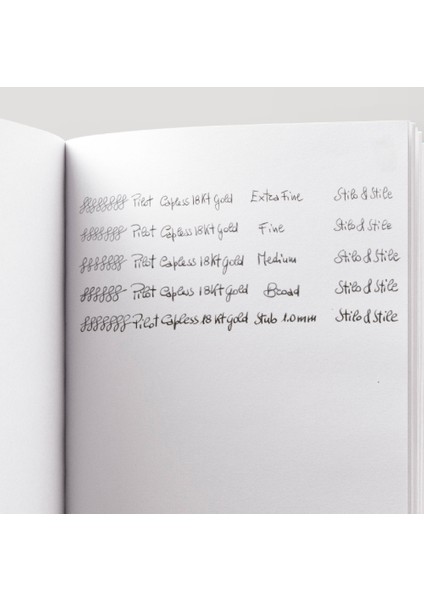 Pilot Capless 18Kt gold Extra Fine Stilo & Stile
Pilot Capless 18Kt gold Fine Stilo & Stile
Pilot Capless 18Kt gold Medium Stilo & Stile
Pilot Capless 18Kt gold Broad Stilo & Stile
Pilot Capless 18Kt gold Stub 1.0mm Stilo & Stile